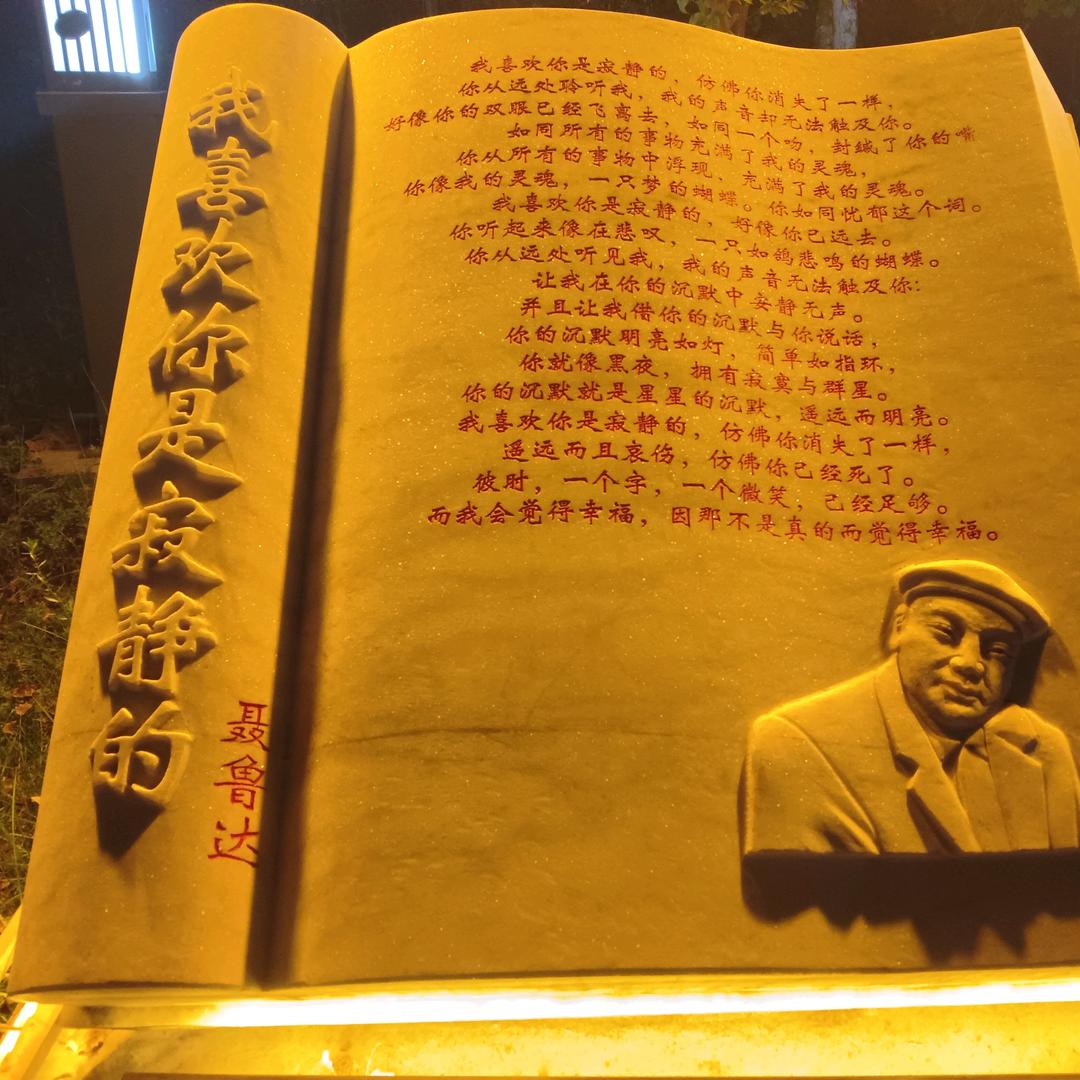 我喜欢你是寂静的
聂鲁达
我喜欢你是寂静的，仿佛你消失了一样，
你从远处聆听我，我的声音却无法触及你。
好像你的双眼已经飞离去，如同一个吻，封缄了你的嘴
如同所有的事物充满了我的灵魂，
你从所有的事物中浮现，充满了我的灵魂。
你像我的灵魂，一只梦的蝴蝶。你如同忧郁这个词。
我喜欢你是寂静的，好像你已远去。
你听起来像在悲叹，一只如鸽悲鸣的蝴蝶。
你从远处听见我，我的声音无法触及你：
让我在你的沉默中安静无声。
并且让我借你的沉默与你说话，
你的沉默明亮如灯，简单如指环，
你就像黑夜，拥有寂寞与群星。
你的沉默就是星星的沉默，遥远而明亮。
我喜欢你是寂静的，仿佛你消失了一样，
遥远而且哀伤，仿佛你已经死了。
彼时，一个字，一个微笑，已经足够。
而我会觉得幸福，因那不是真的而觉得幸福。